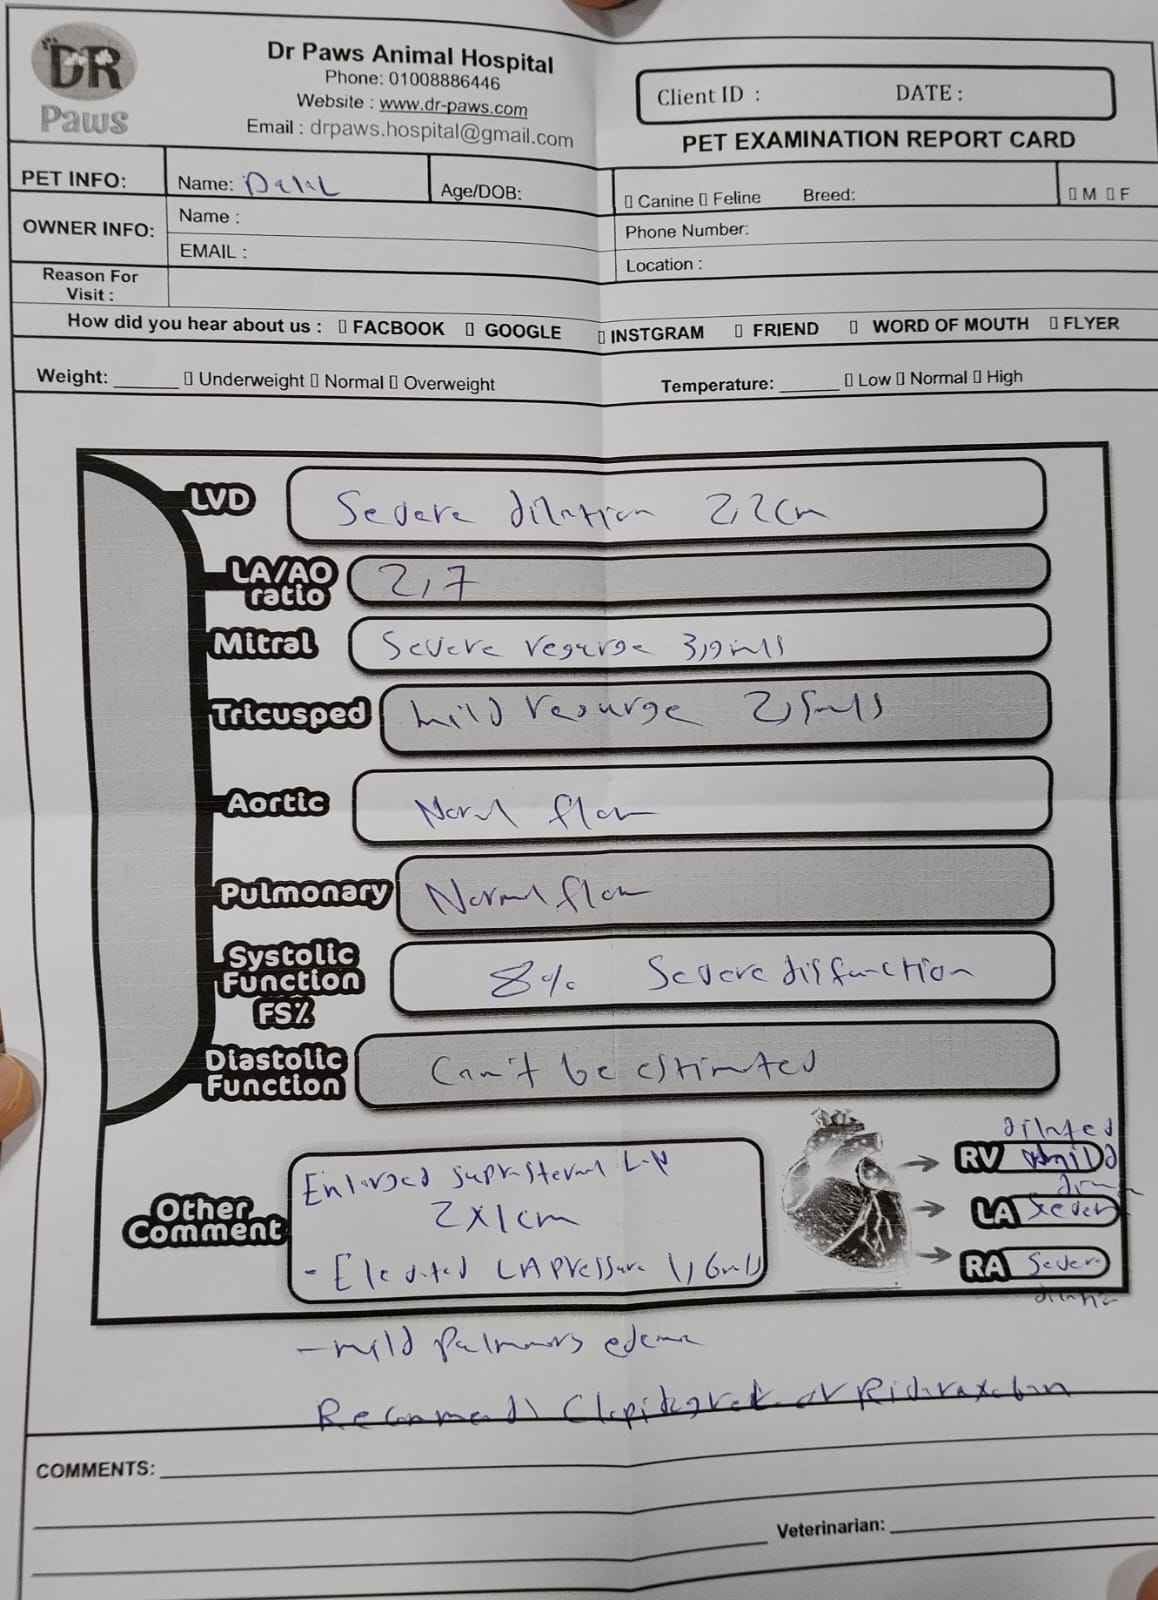 DR
Paws
Dr Paws Animal Hospital
Phone: 01008886446
Website : www.dr-paws.com
Email : drpaws.hospital@gmail.com
Client ID : DATE :
PET EXAMINATION REPORT CARD
PET INFO: Name: Dalal Age/DOB: Canine Feline Breed: M F
OWNER INFO: Name : Phone Number:
EMAIL : Location :
Reason For
Visit :
How did you hear about us : FACBOOK GOOGLE INSTGRAM FRIEND WORD OF MOUTH FLYER
Weight: Underweight Normal Overweight Temperature: Low Normal High
LVD Severe dilation 2,2cm
LA/AO
ratio 2,7
Mitral Severe regurge 3,9m/s
Tricusped mild regurge 2,5m/s
Aortic Normal flow
Pulmonary Normal flow
Systolic
Function
FS% 8% Severe disfunction
Diastolic
Function Can't be estimated
Other
Comment
Enlarged suprasternal L.N
2x1cm
- Elevated LA pressure 1,6m/s
dilated
RV mild
LA sever
RA Sever
dilation
- mild pulmonary edema
Recommend Clopidogrel or Rivaroxaban
COMMENTS:
Veterinarian: